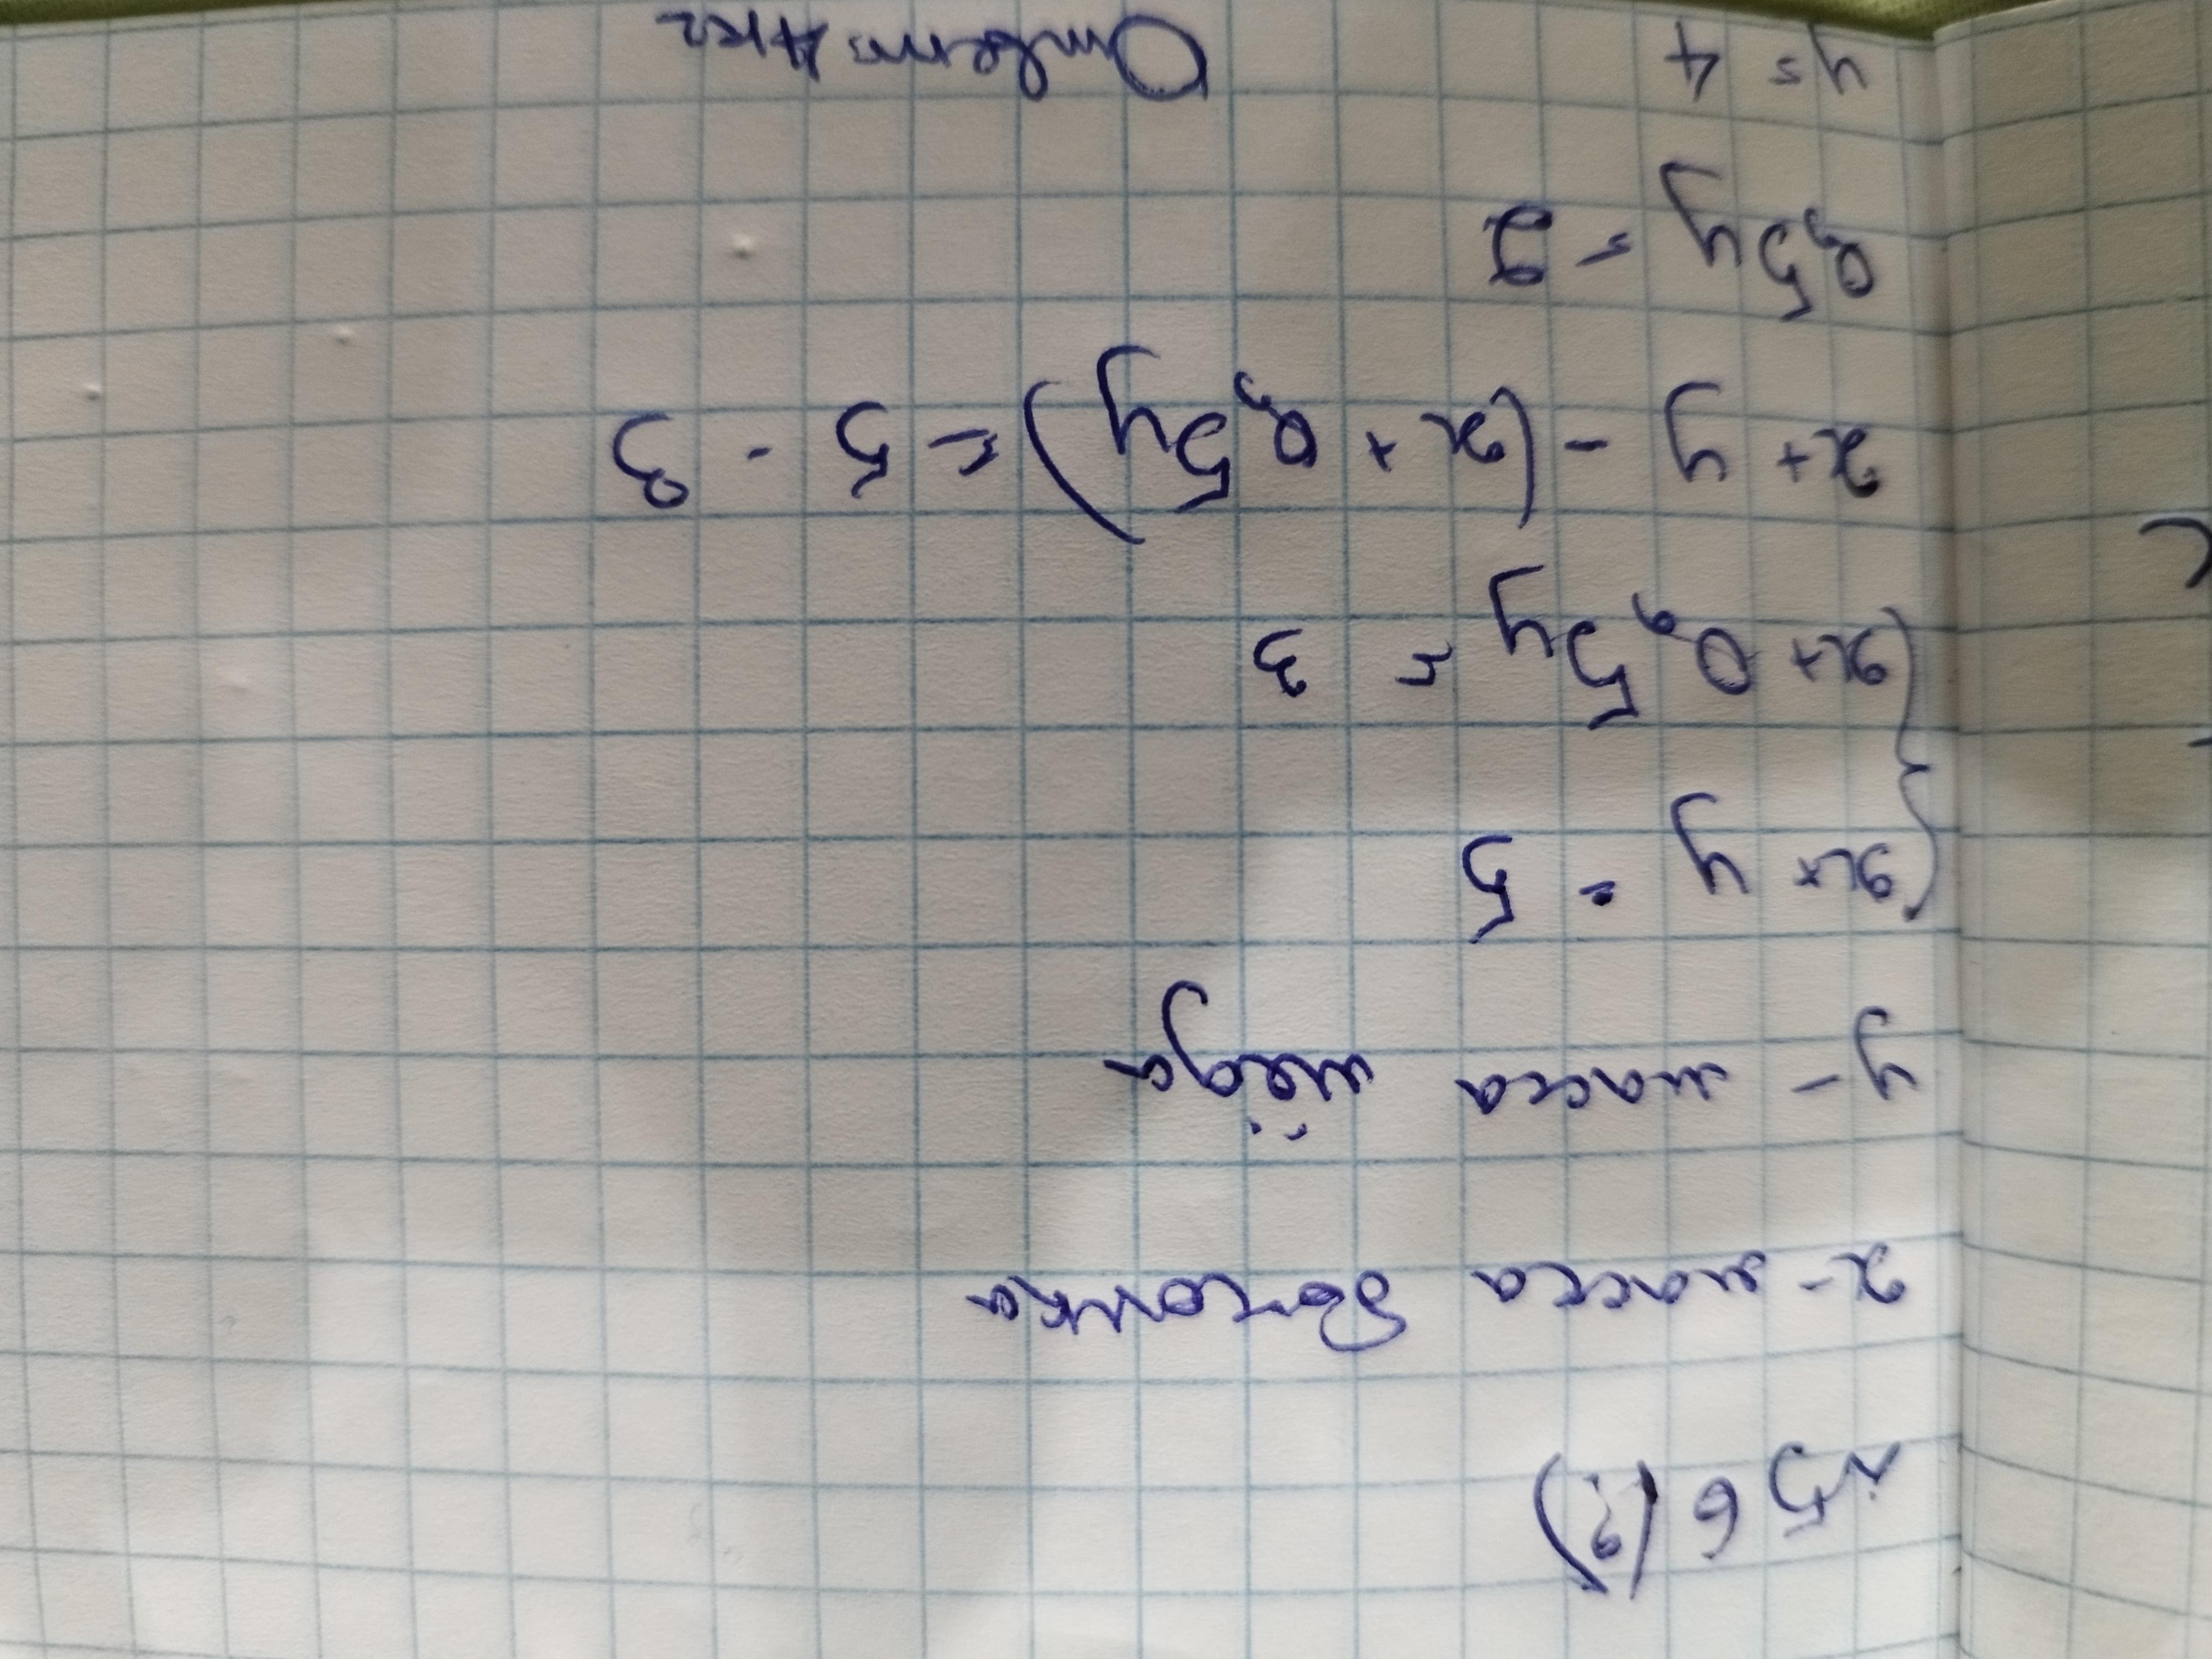 №56(?)
x - масса бочонка
y - масса мёда
x + y = 5
x + 0,5y = 3
x + y - (x + 0,5y) = 5 - 3
0,5y = 2
y = 4 Ответ: 4кг